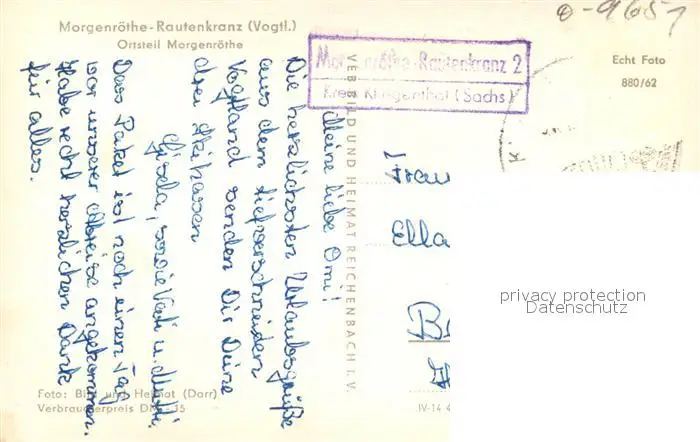 Morgenröthe-Rautenkranz (Vogtl.)
Ortsteil Morgenröthe
Morgenröthe-Rautenkranz 2
Kreis Klingenthal (Sachs)
Echt Foto
880/62
Meine liebe Omi!
Die herzlichsten Urlaubsgrüße
aus dem tiefverschneiten
Vogtland senden Dir Deine
drei
Gisela, sowie Vati u. Mutti.
Das Paket ist noch einen Tag
vor unserer Abreise angekommen.
Habe recht herzlichen Dank
für alles.
VEB BILD UND HEIMAT REICHENBACH i. V.
Frau
Ella
privacy protection
Datenschutz
Foto: Bild und Heimat (Darr)
Verbraucherpreis DM
IV-14 4